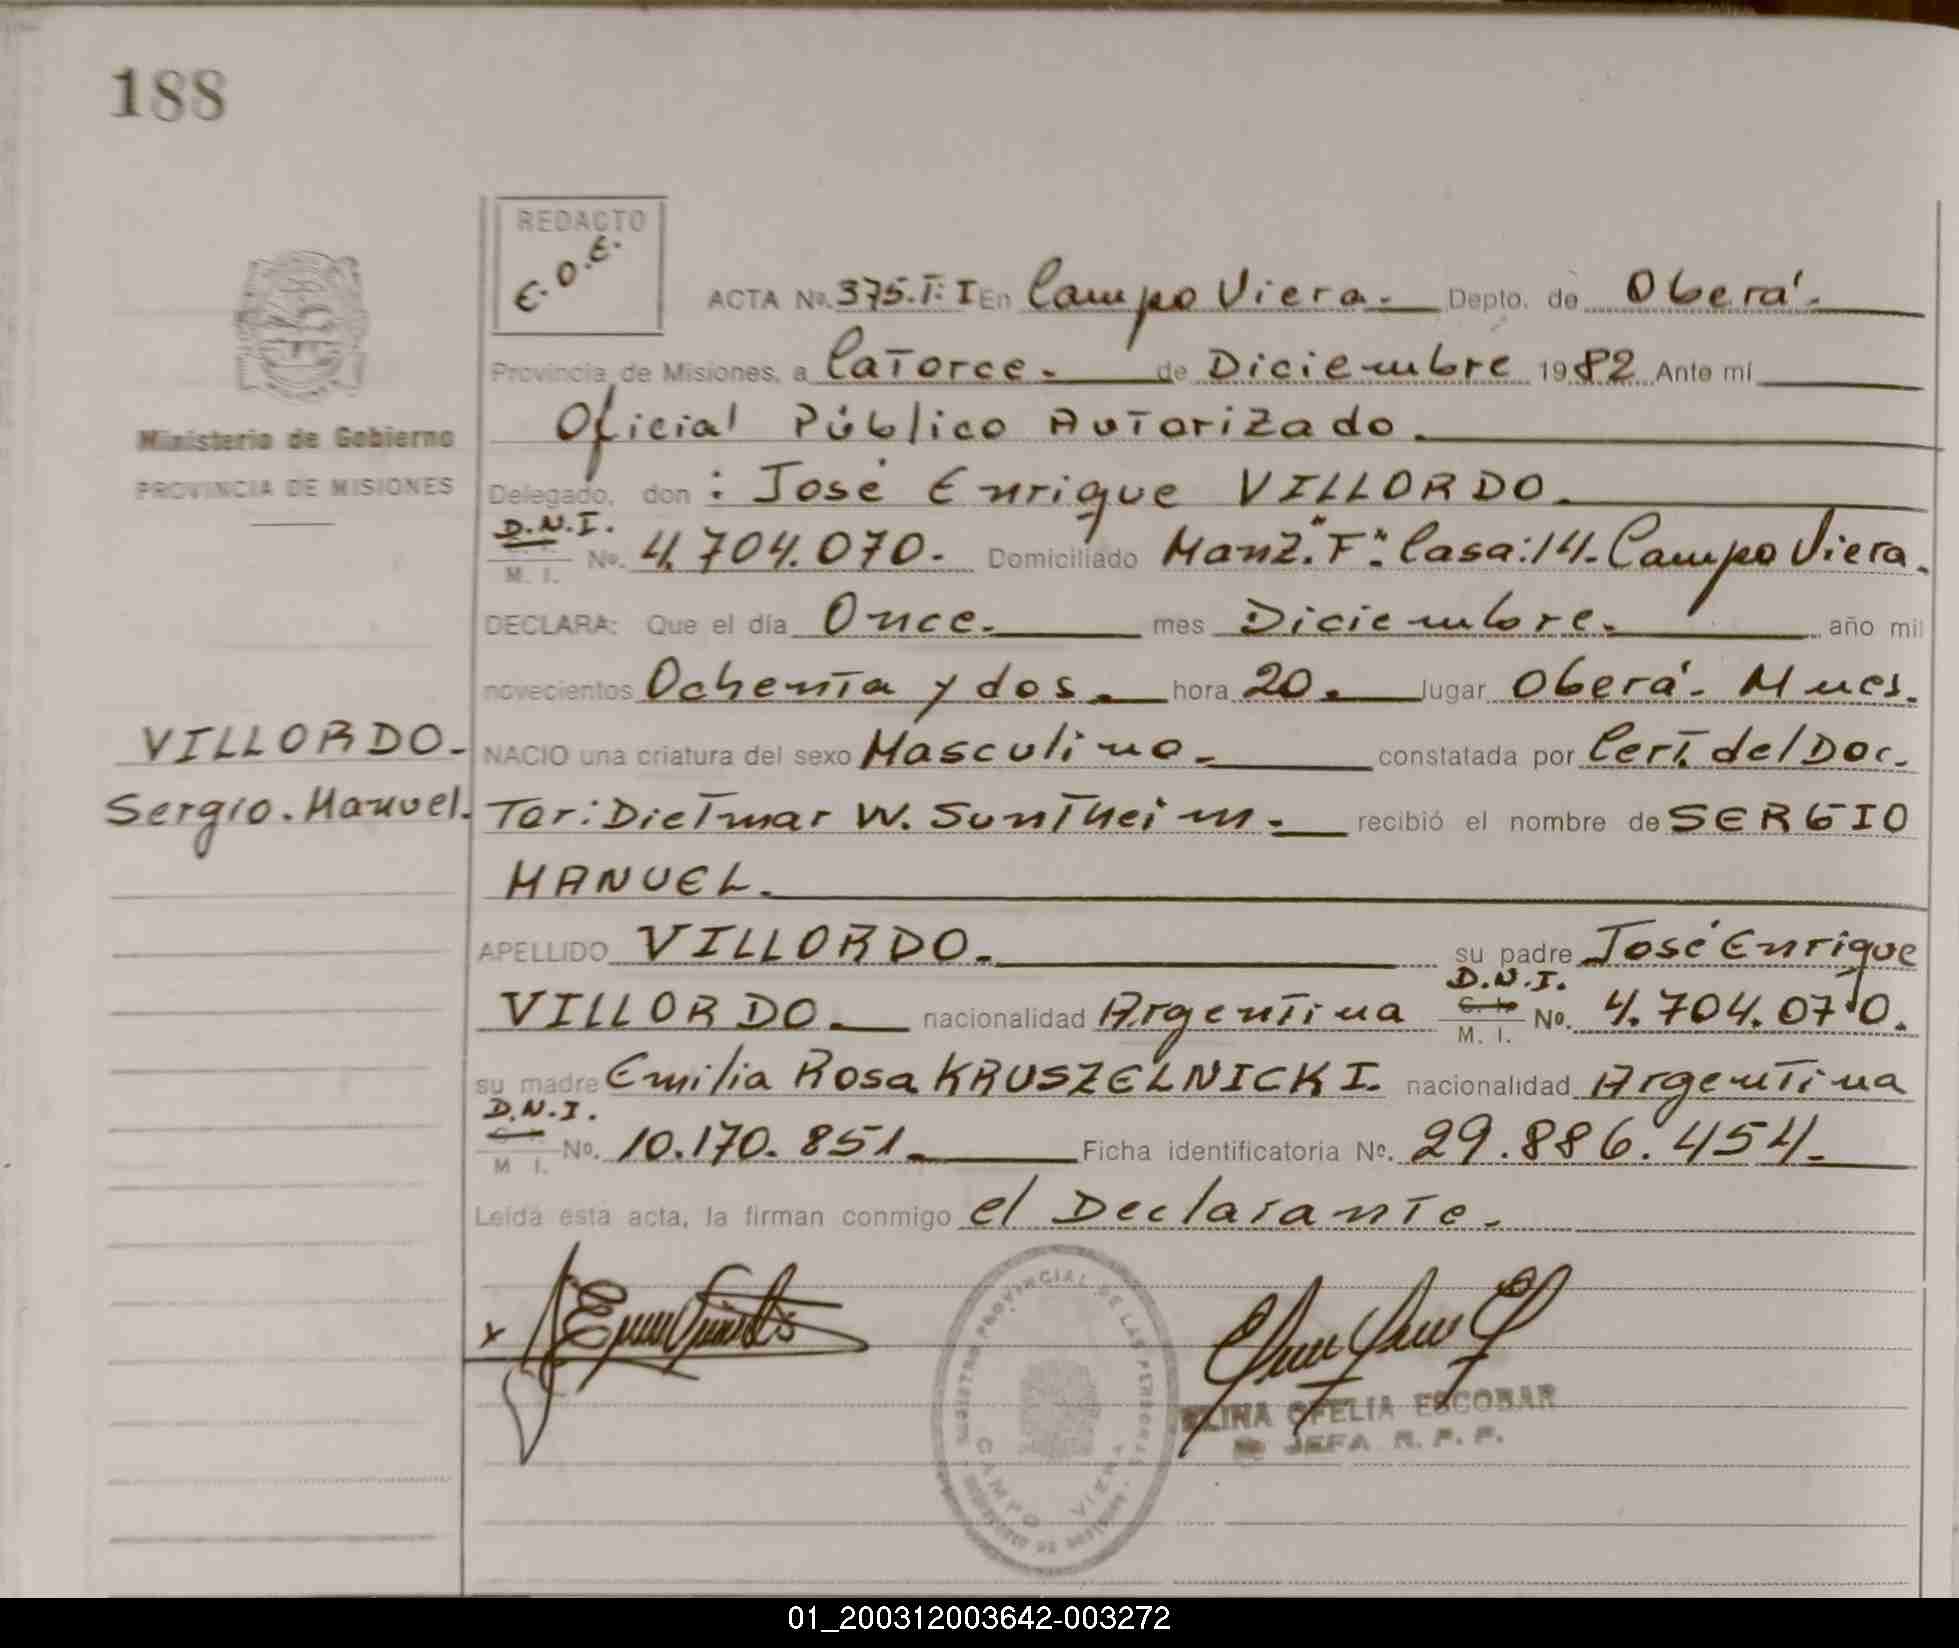 188
REDACTO
E.O.E.
ACTA No. 375.T:I En Campo Viera. Depto. de Oberá.
Provincia de Misiones, a Catorce. de Diciembre 1982 Ante mí
Oficial Público Autorizado.
Ministerio de Gobierno
PROVINCIA DE MISIONES
Delegado, don: José Enrique VILLORDO.
D.N.I.
M. I. No. 4.704.070. Domiciliado Manz."F": Casa:14. Campo Viera.
DECLARA: Que el día Once. mes Diciembre. año mil
novecientos Ochenta y dos. hora 20. lugar Oberá. Mnes.
VILLORDO.
Sergio. Manuel.
NACIO una criatura del sexo Masculino. constatada por Cert. del Doc.
Tor: Dietmar W. Suntheim. recibió el nombre de SERGIO
MANUEL.
APELLIDO VILLORDO. su padre José Enrique
D.N.I.
VILLORDO. nacionalidad Argentina M. I. No. 4.704.070.
su madre Emilia Rosa KRUSZELNICKI. nacionalidad Argentina
D.N.I.
M I. No. 10.170.851. Ficha identificatoria No. 29.886.454.
Leída esta acta, la firman conmigo el Declarante.
REGISTRO PROVINCIAL DE LAS PERSONAS
CAMPO VIERA
ELINA OFELIA ESCOBAR
JEFA R. P. P.
01_200312003642-003272